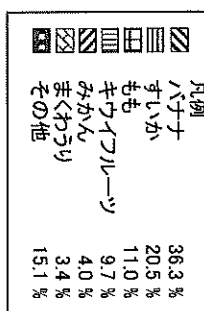 凡例
バナナ 36.3 %
すいか 20.5 %
もも 11.0 %
キウイフルーツ 9.7 %
みかん 4.0 %
まくわうり 3.4 %
その他 15.1 %